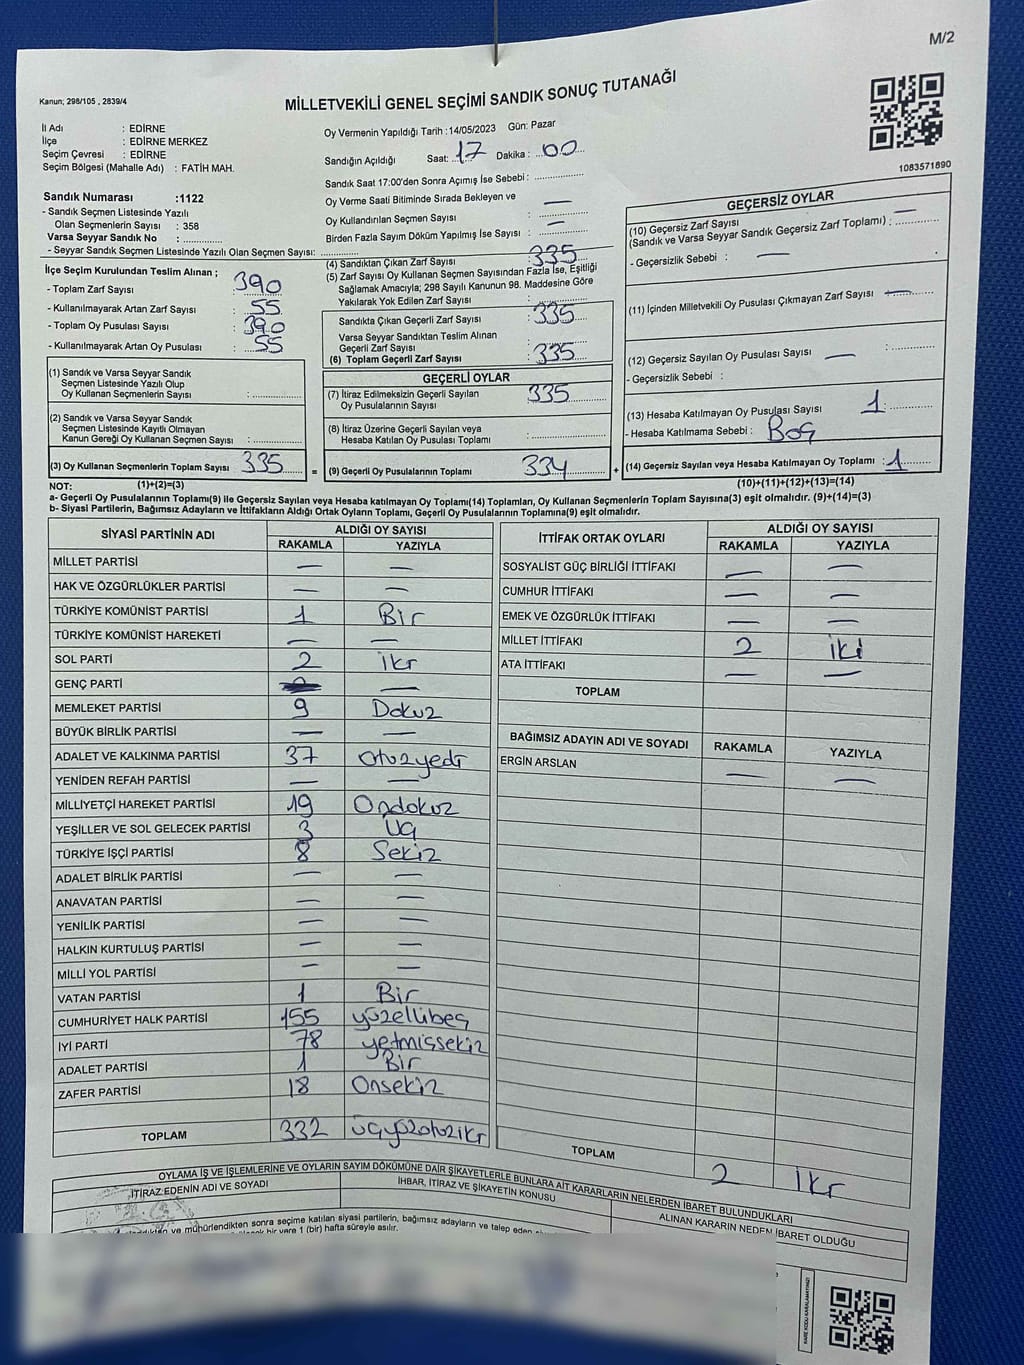 M/2
Kanun; 298/105 , 2839/4
MİLLETVEKİLİ GENEL SEÇİMİ SANDIK SONUÇ TUTANAĞI
İl Adı : EDİRNE
İlçe : EDİRNE MERKEZ
Seçim Çevresi : EDİRNE
Seçim Bölgesi (Mahalle Adı) : FATİH MAH.
Sandık Numarası :1122
- Sandık Seçmen Listesinde Yazılı
Olan Seçmenlerin Sayısı : 358
Varsa Seyyar Sandık No :
- Seyyar Sandık Seçmen Listesinde Yazılı Olan Seçmen Sayısı:
Oy Vermenin Yapıldığı Tarih :14/05/2023 Gün: Pazar
Sandığın Açıldığı Saat: 17 Dakika : 00
Sandık Saat 17:00'den Sonra Açımış İse Sebebi :
Oy Verme Saati Bitiminde Sırada Bekleyen ve
Oy Kullandırılan Seçmen Sayısı : —
Birden Fazla Sayım Döküm Yapılmış İse Sayısı : —
1083571890
İlçe Seçim Kurulundan Teslim Alınan ;
- Toplam Zarf Sayısı : 390
- Kullanılmayarak Artan Zarf Sayısı : 55
- Toplam Oy Pusulası Sayısı : 390
- Kullanılmayarak Artan Oy Pusulası : 55
(1) Sandık ve Varsa Seyyar Sandık
Seçmen Listesinde Yazılı Olup
Oy Kullanan Seçmenlerin Sayısı :
(2) Sandık ve Varsa Seyyar Sandık
Seçmen Listesinde Kayıtlı Olmayan
Kanun Gereği Oy Kullanan Seçmen Sayısı :
(3) Oy Kullanan Seçmenlerin Toplam Sayısı 335
(1)+(2)=(3)
(4) Sandıktan Çıkan Zarf Sayısı : 335
(5) Zarf Sayısı Oy Kullanan Seçmen Sayısından Fazla İse, Eşitliği
Sağlamak Amacıyla; 298 Sayılı Kanunun 98. Maddesine Göre
Yakılarak Yok Edilen Zarf Sayısı :
Sandıkta Çıkan Geçerli Zarf Sayısı : 335
Varsa Seyyar Sandıktan Teslim Alınan
Geçerli Zarf Sayısı :
(6) Toplam Geçerli Zarf Sayısı : 335
GEÇERLİ OYLAR
(7) İtiraz Edilmeksizin Geçerli Sayılan
Oy Pusulalarının Sayısı : 335
(8) İtiraz Üzerine Geçerli Sayılan veya
Hesaba Katılan Oy Pusulası Toplamı :
= (9) Geçerli Oy Pusulalarının Toplamı 334 +
GEÇERSİZ OYLAR
(10) Geçersiz Zarf Sayısı —
(Sandık ve Varsa Seyyar Sandık Geçersiz Zarf Toplamı) :
- Geçersizlik Sebebi : —
(11) İçinden Milletvekili Oy Pusulası Çıkmayan Zarf Sayısı —
(12) Geçersiz Sayılan Oy Pusulası Sayısı — :
- Geçersizlik Sebebi :
(13) Hesaba Katılmayan Oy Pusulası Sayısı 1 :
- Hesaba Katılmama Sebebi : Boş
(14) Geçersiz Sayılan veya Hesaba Katılmayan Oy Toplamı : 1
(10)+(11)+(12)+(13)=(14)
NOT:
a- Geçerli Oy Pusulalarının Toplamı(9) ile Geçersiz Sayılan veya Hesaba katılmayan Oy Toplamı(14) Toplamları, Oy Kullanan Seçmenlerin Toplam Sayısına(3) eşit olmalıdır. (9)+(14)=(3)
b- Siyasi Partilerin, Bağımsız Adayların ve İttifakların Aldığı Ortak Oyların Toplamı, Geçerli Oy Pusulalarının Toplamına(9) eşit olmalıdır.
SİYASİ PARTİNİN ADI ALDIĞI OY SAYISI
RAKAMLA YAZIYLA
MİLLET PARTİSİ — —
HAK VE ÖZGÜRLÜKLER PARTİSİ — —
TÜRKİYE KOMÜNİST PARTİSİ 1 Bir
TÜRKİYE KOMÜNİST HAREKETİ — —
SOL PARTİ 2 ikr
GENÇ PARTİ —
MEMLEKET PARTİSİ 9 Dokuz
BÜYÜK BİRLİK PARTİSİ — —
ADALET VE KALKINMA PARTİSİ 37 otuzyedi
YENİDEN REFAH PARTİSİ — —
MİLLİYETÇİ HAREKET PARTİSİ 19 Ondokuz
YEŞİLLER VE SOL GELECEK PARTİSİ 3 Üç
TÜRKİYE İŞÇİ PARTİSİ 8 Sekiz
ADALET BİRLİK PARTİSİ — —
ANAVATAN PARTİSİ — —
YENİLİK PARTİSİ — —
HALKIN KURTULUŞ PARTİSİ — —
MİLLİ YOL PARTİSİ — —
VATAN PARTİSİ 1 Bir
CUMHURİYET HALK PARTİSİ 155 yüzellibeş
İYİ PARTİ 78 yetmişsekiz
ADALET PARTİSİ 1 Bir
ZAFER PARTİSİ 18 Onsekiz
TOPLAM 332 üçyüzotuzikr
İTTİFAK ORTAK OYLARI ALDIĞI OY SAYISI
RAKAMLA YAZIYLA
SOSYALİST GÜÇ BİRLİĞİ İTTİFAKI — —
CUMHUR İTTİFAKI — —
EMEK VE ÖZGÜRLÜK İTTİFAKI — —
MİLLET İTTİFAKI 2 iki
ATA İTTİFAKI — —
TOPLAM
BAĞIMSIZ ADAYIN ADI VE SOYADI RAKAMLA YAZIYLA
ERGİN ARSLAN — —
TOPLAM 2 İkr
OYLAMA İŞ VE İŞLEMLERİNE VE OYLARIN SAYIM DÖKÜMÜNE DAİR ŞİKAYETLERLE BUNLARA AİT KARARLARIN NELERDEN İBARET BULUNDUKLARI
İTİRAZ EDENİN ADI VE SOYADI İHBAR, İTİRAZ VE ŞİKAYETİN KONUSU ALINAN KARARIN NEDEN İBARET OLDUĞU
ve mühürlendikten sonra seçime katılan siyasi partilerin, bağımsız adayların ve talep eden
bir yere 1 (bir) hafta süreyle asılır.
KARE KODU KARALAMAYINIZ!